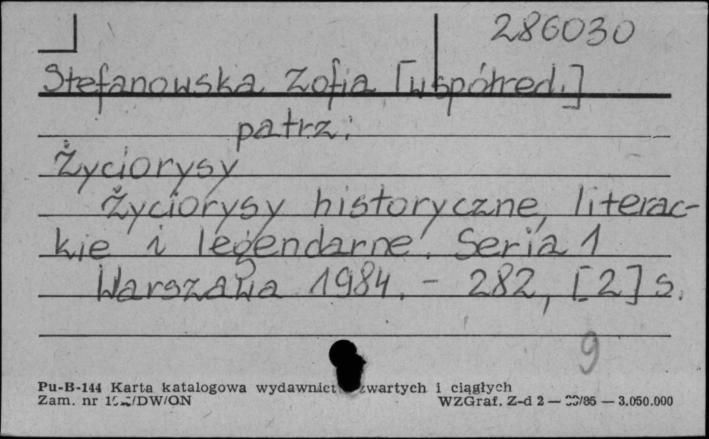 286030
Stefanowska Zofia [współred.]
patrz:
Życiorysy
Życiorysy historyczne, literac-
kie i legendarne. Seria 1
Warszawa 1984. - 282, [2] s.
9
Pu-B-144 Karta katalogowa wydawnictw zwartych i ciągłych
Zam. nr WZGraf. Z-d 2 — /85 — 3.050.000